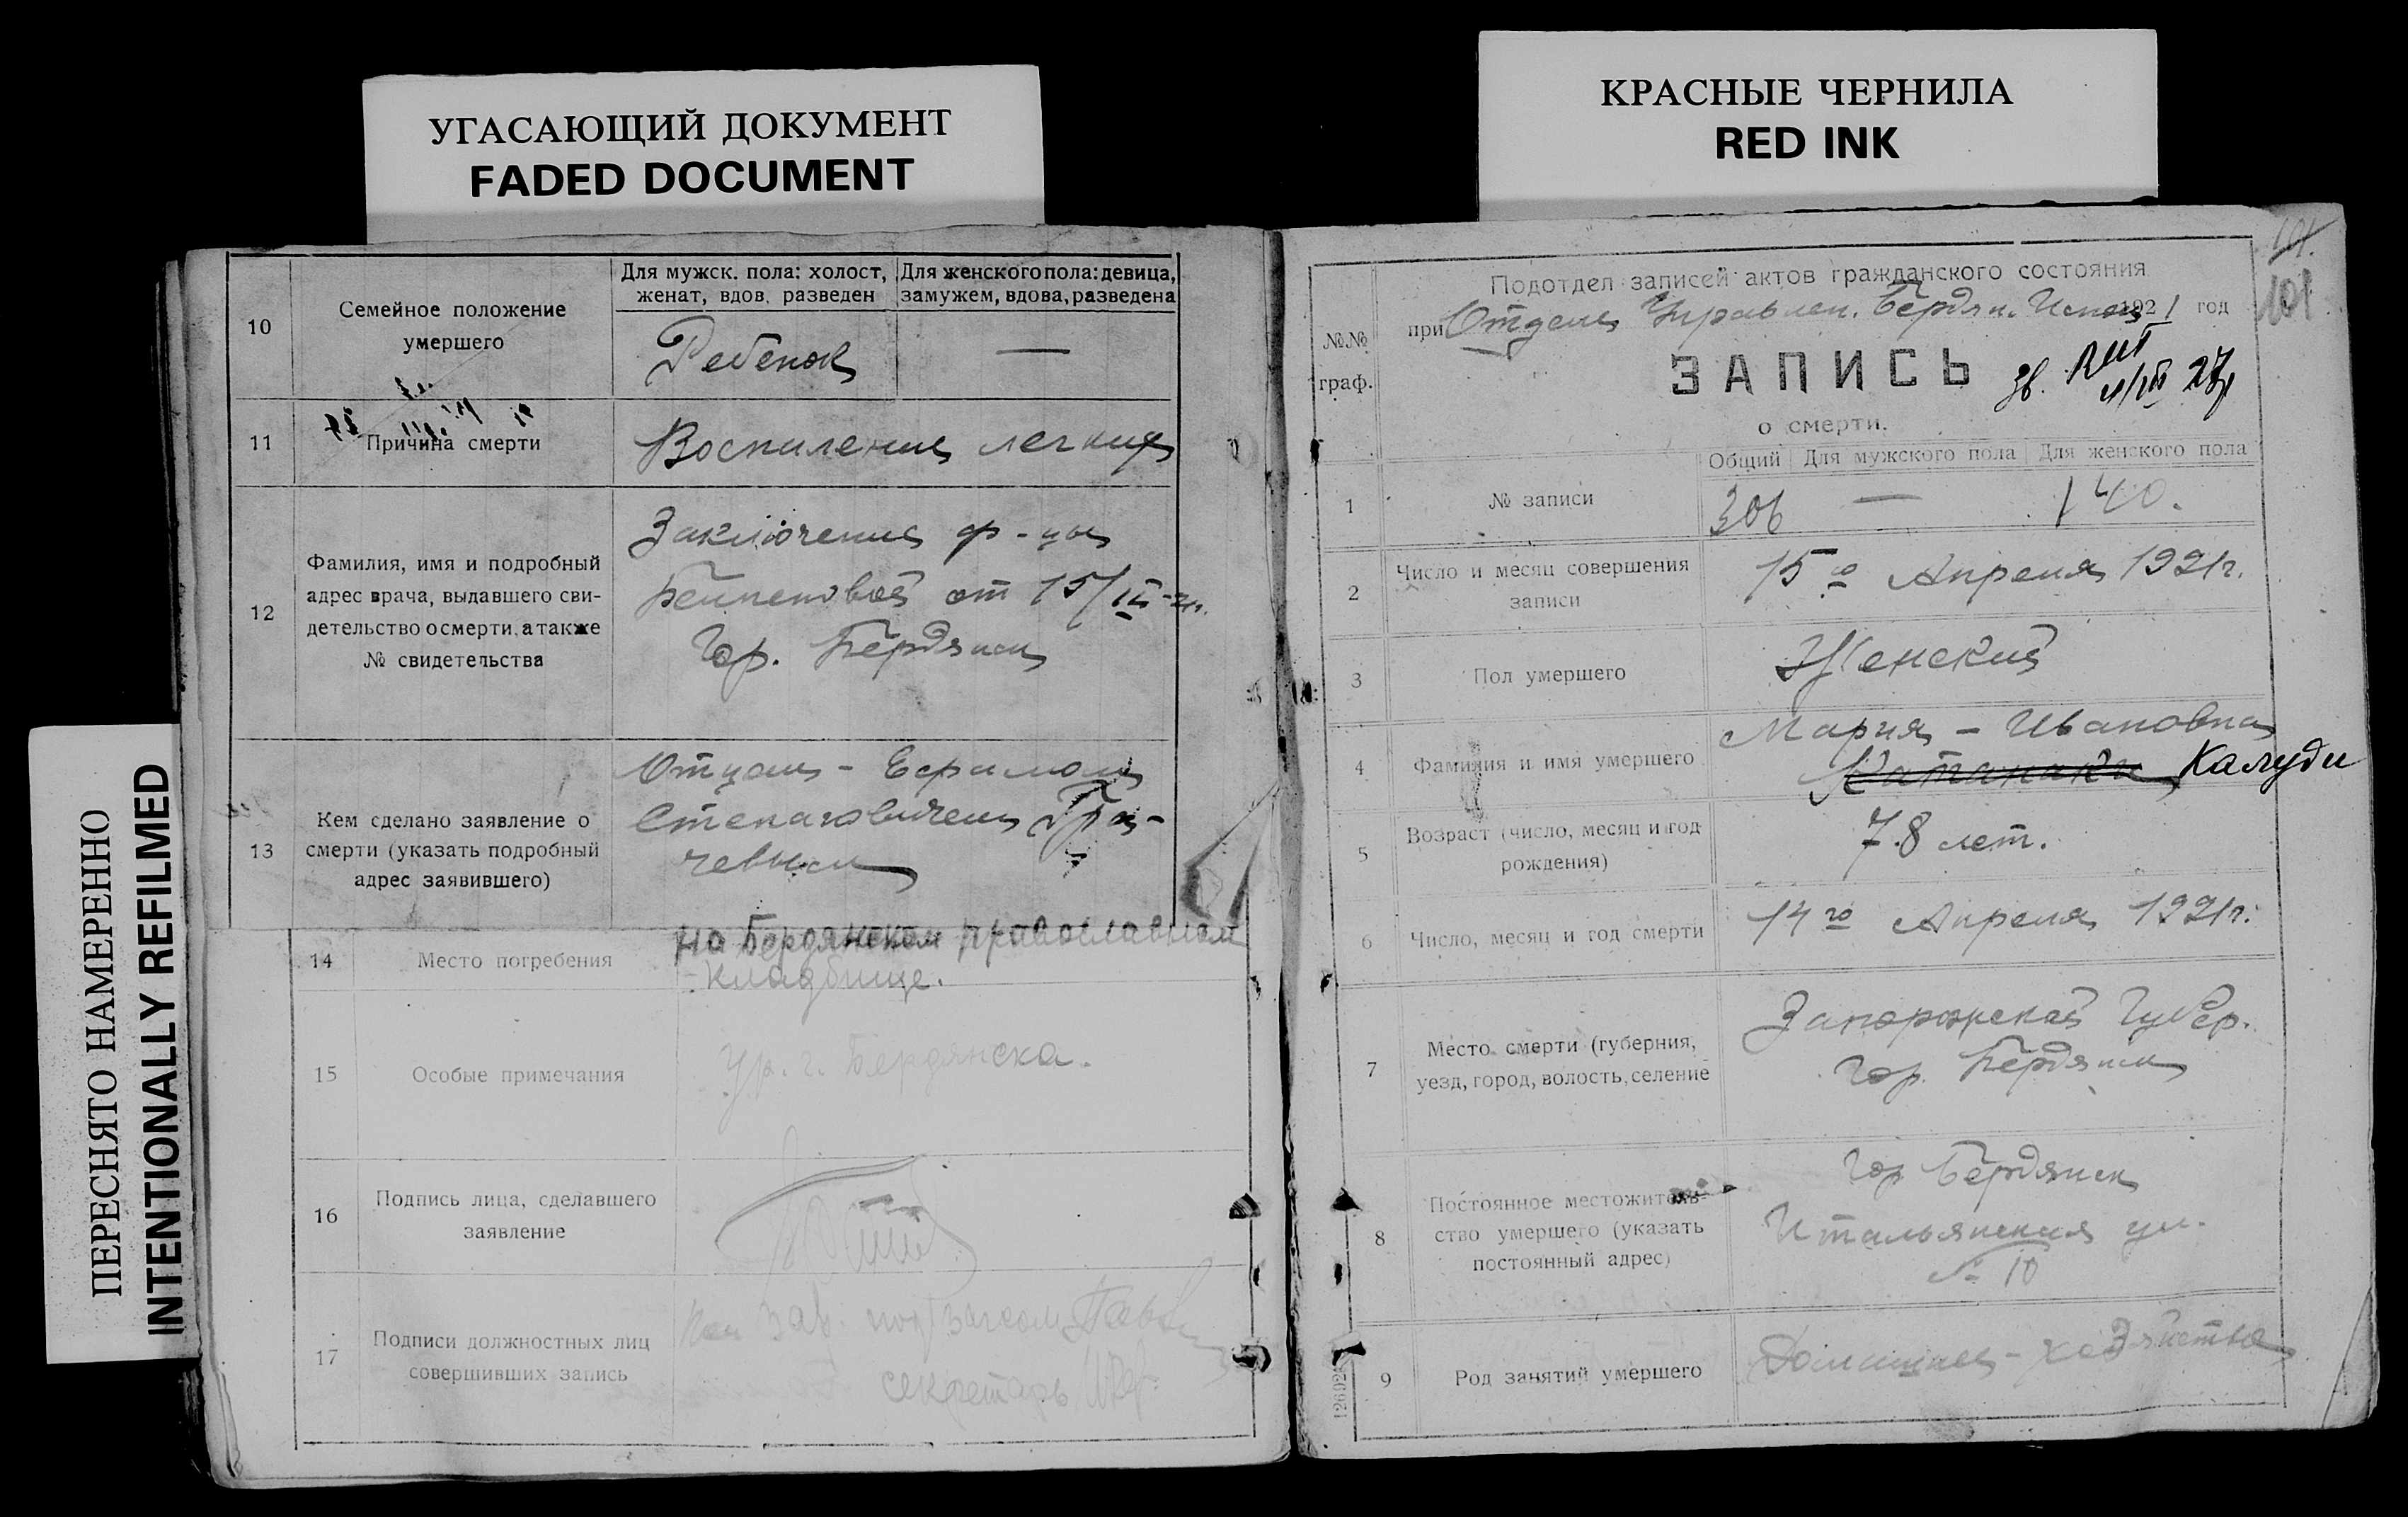 УГАСАЮЩИЙ ДОКУМЕНТ
FADED DOCUMENT
КРАСНЫЕ ЧЕРНИЛА
RED INK
ПЕРЕСНЯТО НАМЕРЕННО
INTENTIONALLY REFILMED
10
Семейное положение
умершего
Для мужск. пола: холост,
женат, вдов. разведен
Для женского пола: девица,
замужем, вдова, разведена
Ребенок
—
11
Причина смерти
Воспаление легких
12
Фамилия, имя и подробный
адрес врача, выдавшего сви-
детельство о смерти, а также
№ свидетельства
Заключение
от 15/IV-21г.
Гор. Бердянск
13
Кем сделано заявление о
смерти (указать подробный
адрес заявившего)
Отцом -
Степановичем
14
Место погребения
на Бердянском православном
кладбище.
15
Особые примечания
Ур. г. Бердянска.
16
Подпись лица, сделавшего
заявление
17
Подписи должностных лиц
совершивших запись
Зав.
секретарь
101
№№
граф.
Подотдел записей актов гражданского состояния
при Отделе Управлен. Бердян. 1921 год
ЗАПИСЬ
о смерти.
Общий
Для мужского пола
Для женского пола
1
№ записи
306 — 140.
2
Число и месяц совершения
записи
15го Апреля 1921г.
3
Пол умершего
Женский
4
Фамилия и имя умершего
Мария - Ивановна
Калуди
5
Возраст (число, месяц и год
рождения)
78 лет.
6
Число, месяц и год смерти
14го Апреля 1921г.
7
Место смерти (губерния,
уезд, город, волость, селение
Запорожской Губер.
Гор. Бердянск
8
Постоянное местожитель-
ство умершего (указать
постоянный адрес)
Гор Бердянск
Итальянская ул.
№ 10
9
Род занятий умершего
Домашнее - хозяйство